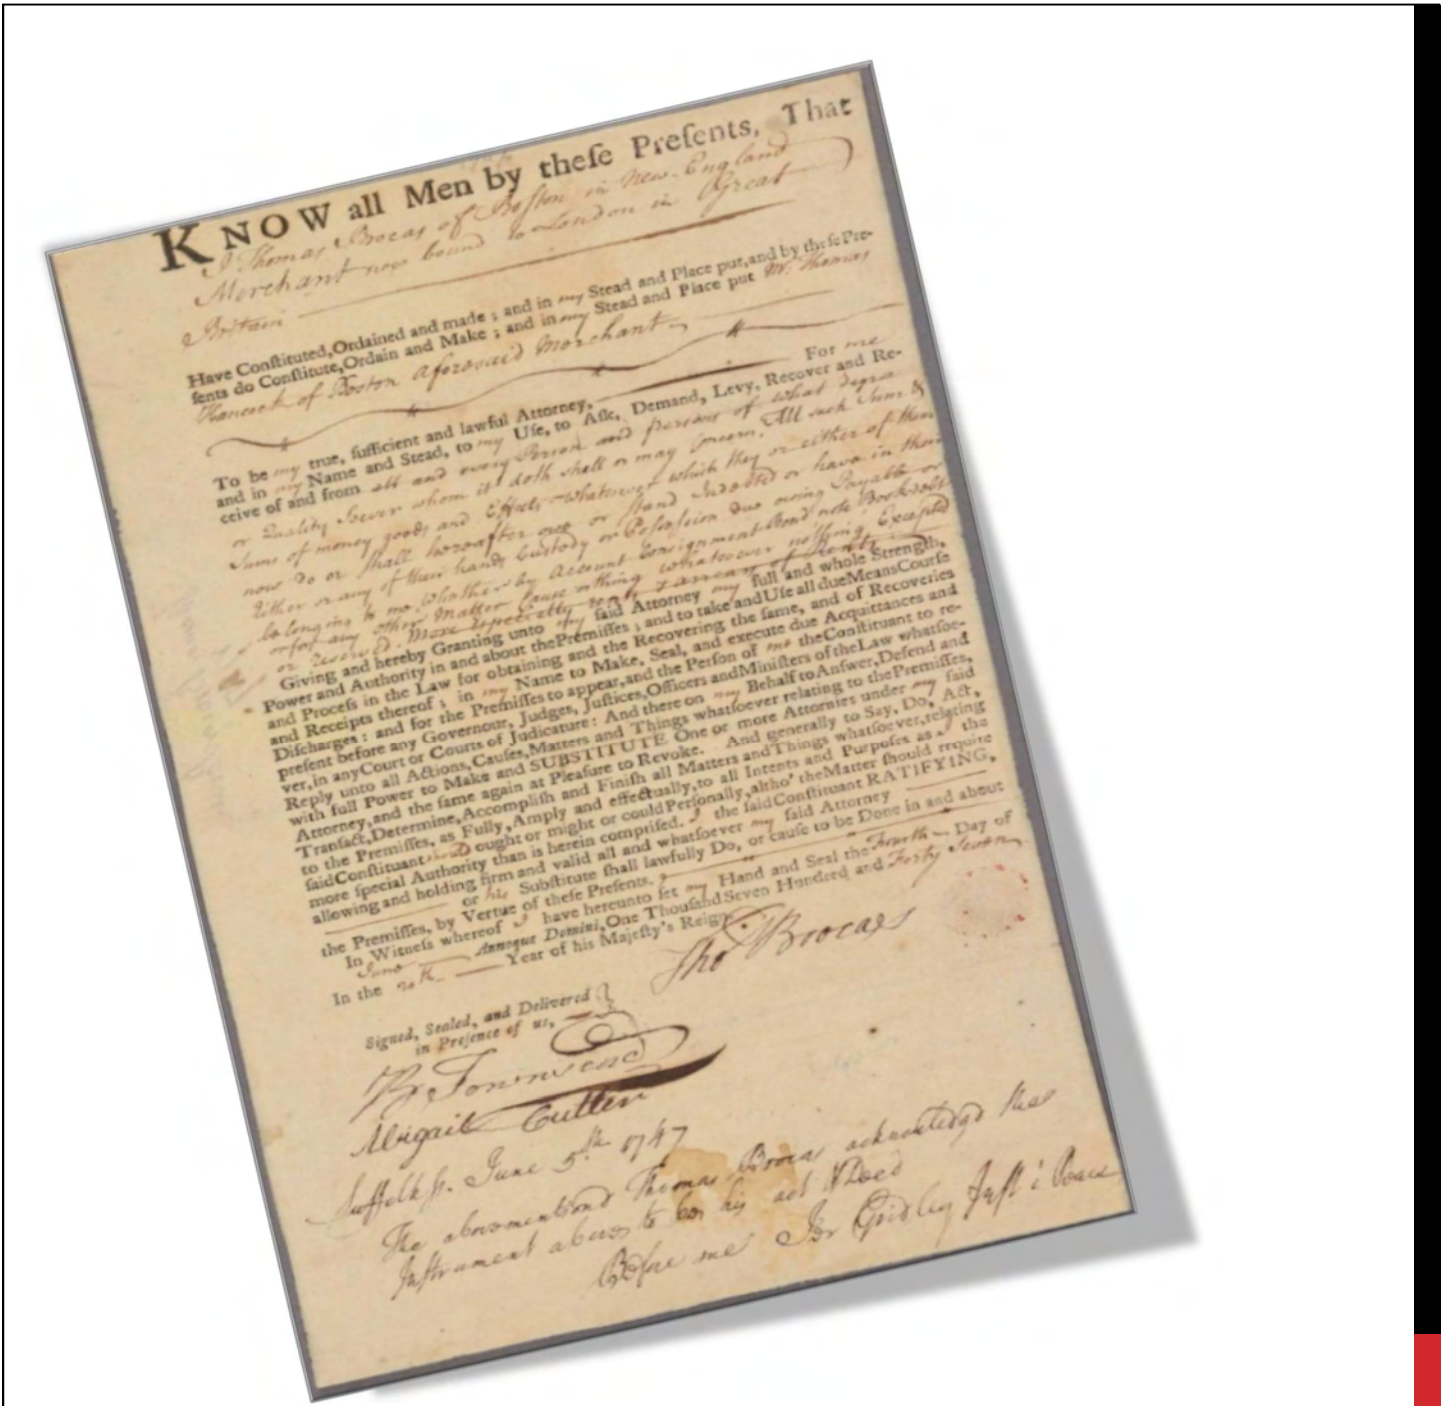 KNOW all Men by theſe Preſents, That
I Thomas Brocas of Boſton in New-England
Merchant now bound to London in Great
Britain
Have Conſtituted, Ordained and made ; and in my Stead and Place put, and by theſe Pre-
ſents do Conſtitute, Ordain and Make ; and in my Stead and Place put Mr. Thomas
Hancock of Boston aforesaid Merchant
To be my true, ſufficient and lawful Attorney, For me
and in my Name and Stead, to my Uſe, to Aſk, Demand, Levy, Recover and Re-
ceive of and from all and every Person and persons of what degree
or Quality soever whom it doth shall or may concern, All such Sum &
Sums of money goods and Effects whatsoever which they or either of them
now do or shall hereafter owe or stand Indebted or have in their
Either or any of their hands Custody or Possession due owing Payable or
belonging to me, whether by Account Consignment Bond note Bookdebt
or for any other Matter Cause or thing whatsoever nothing Excepted
or reserved. More especially
Giving and hereby Granting unto my ſaid Attorney my full and whole Strength,
Power and Authority in and about the Premiſſes ; and to take and Uſe all due Means Courſe
and Proceſs in the Law for obtaining and the Recovering the ſame, and of Recoveries
and Receipts thereof ; in my Name to Make, Seal, and execute due Acquittances and
Diſcharges : and for the Premiſſes to appear, and the Perſon of me the Conſtituant to re-
preſent before any Governour, Judges, Juſtices, Officers and Miniſters of the Law whatſoe-
ver, in any Court or Courts of Judicature : And there on my Behalf to Anſwer, Defend and
Reply unto all Actions, Cauſes, Matters and Things whatſoever relating to the Premiſſes,
with full Power to Make and SUBSTITUTE One or more Attornies under my ſaid
Attorney, and the ſame again at Pleaſure to Revoke. And generally to Say, Do, Act,
Tranſact, Determine, Accompliſh and Finiſh all Matters and Things whatſoever, relating
to the Premiſſes, as Fully, Amply and effectually, to all Intents and Purpoſes as I the
ſaid Conſtituant ought or might or could Perſonally, altho' the Matter ſhould require
more ſpecial Authority than is herein compriſed. I the ſaid Conſtituant RATIFYING,
allowing and holding firm and valid all and whatſoever my ſaid Attorney
or his Subſtitute ſhall lawfully Do, or cauſe to be Done in and about
the Premiſſes, by Vertue of theſe Preſents.
In Witneſs whereof I have hereunto ſet my Hand and Seal the Fourth Day of
June Annoque Domini, One Thouſand Seven Hundred and Forty Seven
In the 20th Year of his Majeſty's Reign.
Tho Brocas
Signed, Sealed, and Delivered
in Preſence of us,
Townsend
Abigail Cutler
Suffolk ſs. June 5th 1747
The abovementiond Thomas Brocas acknowledgd this
Inſtrument above to be his act & Deed
Before me Jer Gridley Juſt: Peace